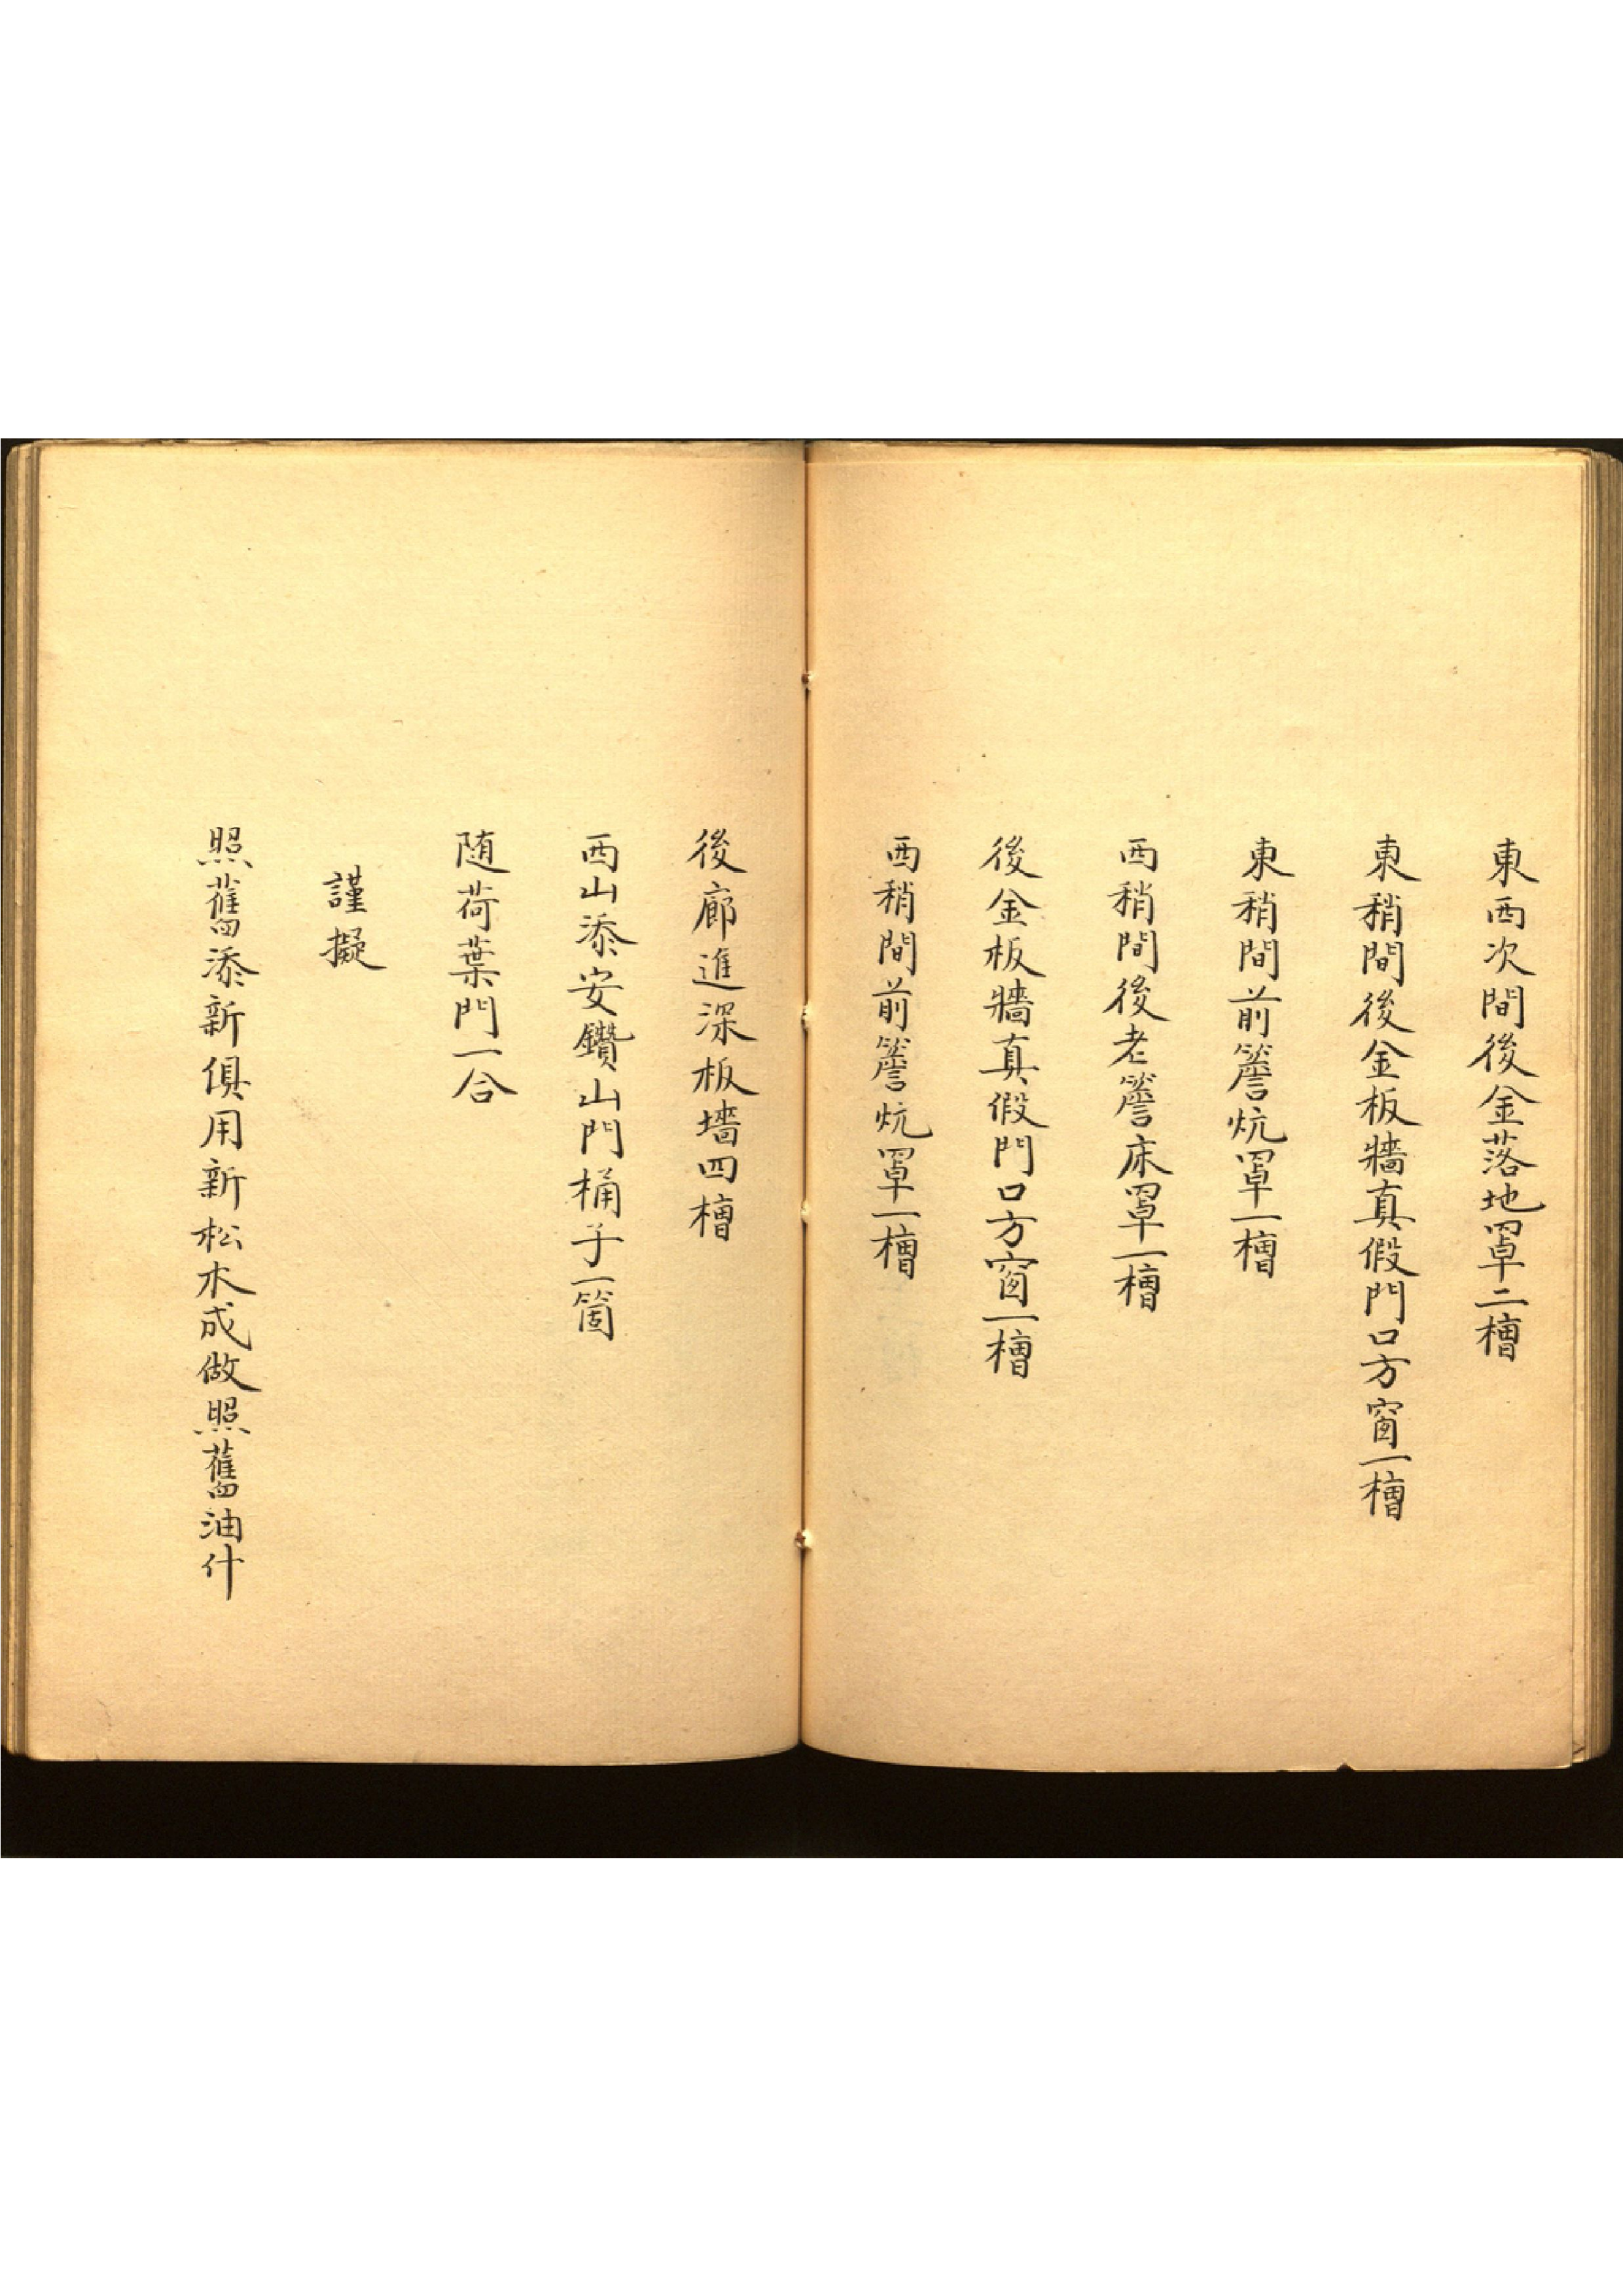 東西次間後金落地罩二槽
東稍間後金板牆真假門口方窗一槽
東稍間前簷炕罩一槽
西稍間後老簷床罩一槽
後金板牆真假門口方窗一槽
西稍間前簷炕罩一槽
後廊進深板墻四槽
西山添安鑽山門桶子一箇
随荷葉門一合
謹擬
照舊添新俱用新松木成做照舊油什